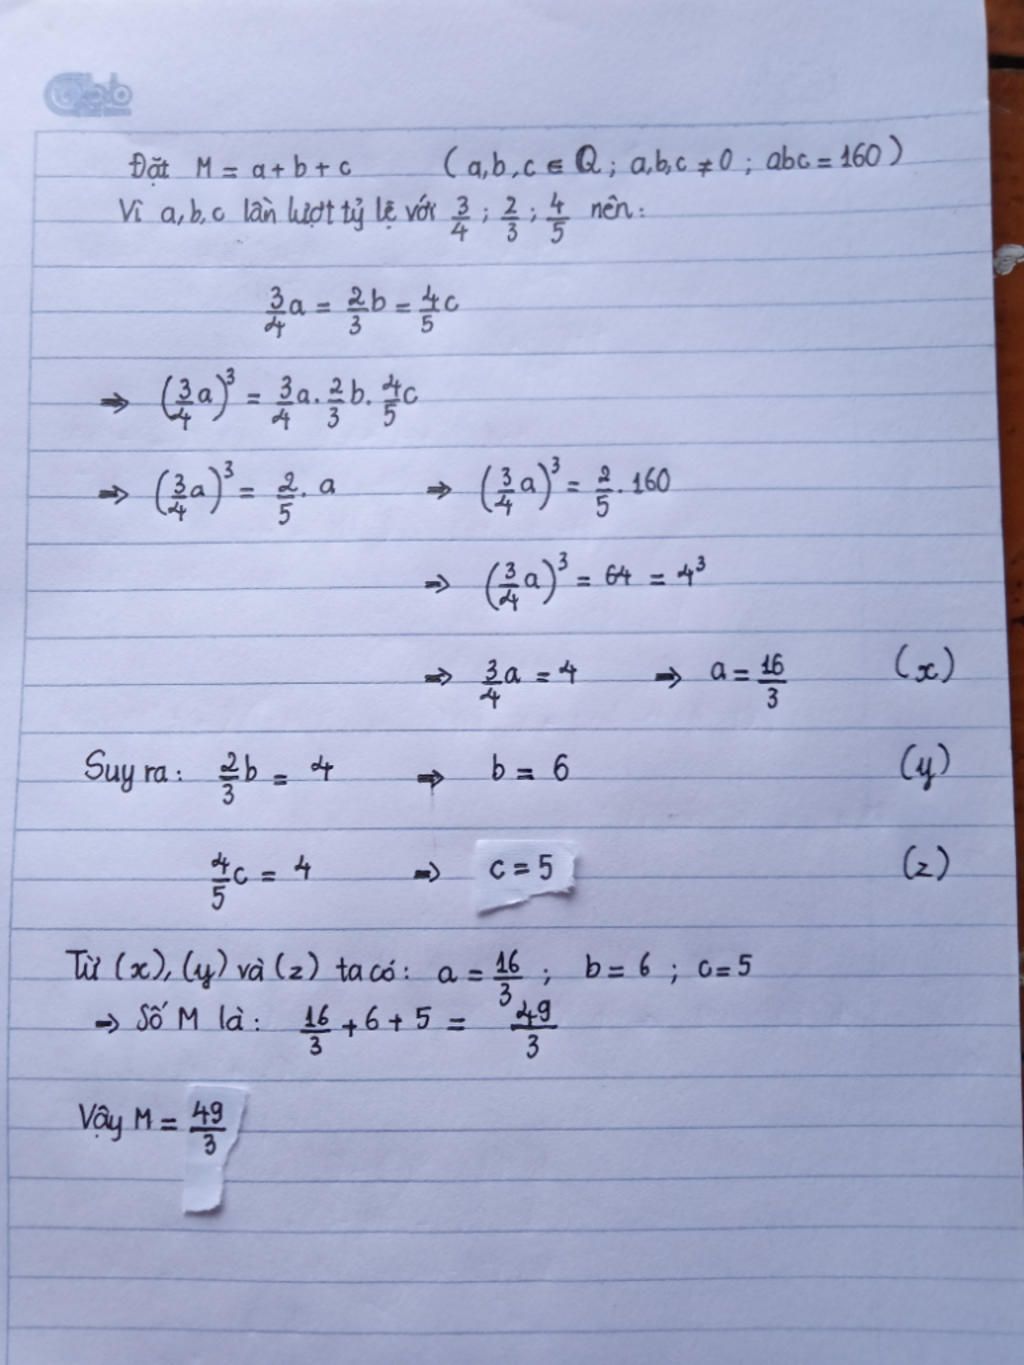 Đặt M = a + b + c (a,b,c ∈ Q ; a,b,c ≠ 0 ; abc = 160)
Vì a,b,c lần lượt tỷ lệ với 3/4 ; 2/3 ; 4/5 nên:
3/4 a = 2/3 b = 4/5 c
⇒ (3/4 a)³ = 3/4 a . 2/3 b . 4/5 c
⇒ (3/4 a)³ = 2/5 . a ⇒ (3/4 a)³ = 2/5 . 160
⇒ (3/4 a)³ = 64 = 4³
⇒ 3/4 a = 4 ⇒ a = 16/3 (x)
Suy ra: 2/3 b = 4 ⇒ b = 6 (y)
4/5 c = 4 ⇒ c = 5 (z)
Từ (x), (y) và (z) ta có: a = 16/3 ; b = 6 ; c = 5
⇒ Số M là: 16/3 + 6 + 5 = 49/3
Vậy M = 49/3